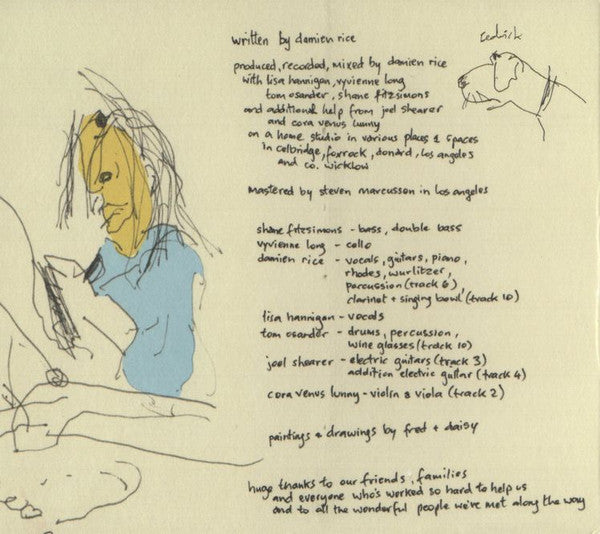 written by damien rice
cedrick
produced, recorded, mixed by damien rice
with lisa hannigan, vyvienne long
tom osander, shane fitzsimons
and additional help from joel shearer
and cora venus lunny
on a home studio in various places & spaces
in celbridge, foxrock, donard, los angeles
and co. wicklow
mastered by steven marcussen in los angeles
shane fitzsimons - bass, double bass
vyvienne long - cello
damien rice - vocals, guitars, piano,
rhodes, wurlitzer,
percussion (track 6),
clarinet + singing bowl (track 10)
lisa hannigan - vocals
tom osander - drums, percussion,
wine glasses (track 10)
joel shearer - electric guitars (track 3)
addition electric guitar (track 4)
cora venus lunny - violin & viola (track 2)
paintings & drawings by fred + daisy
huge thanks to our friends, families
and everyone who's worked so hard to help us
and to all the wonderful people we've met along the way